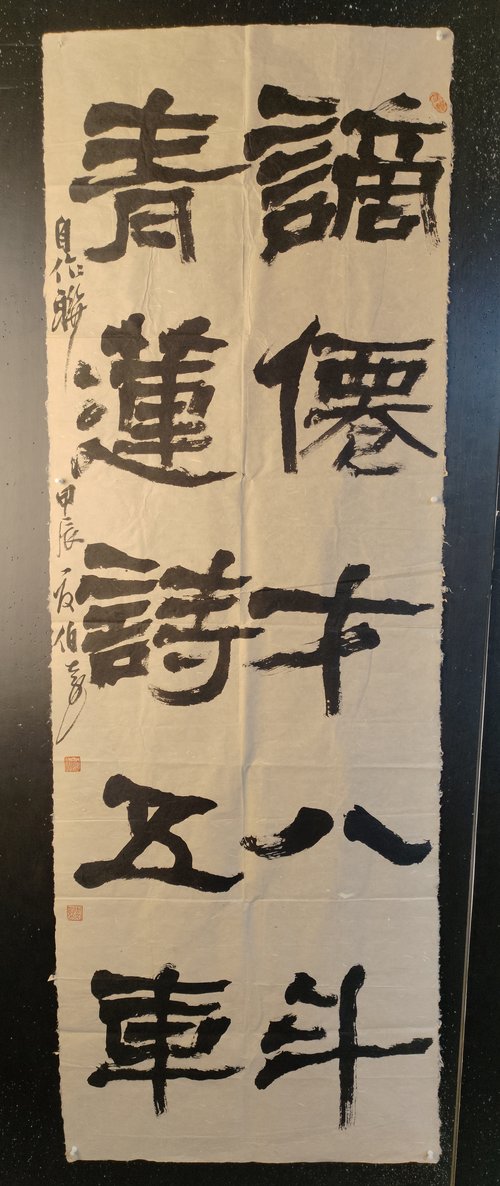 謫僊才八斗
青蓮詩五車
自作聯 甲辰 夏伯